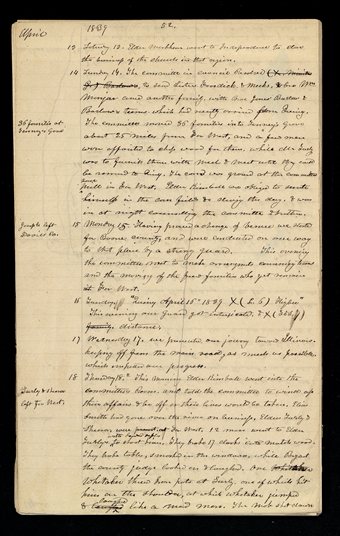 April
1839
52.
13 Saturday 13. Elder Markham went to Independence to close
the business of the church in that region.
14 Sunday 14. The committee in council Resolved
to send Sisters Fosdick & Meeks, & bro Wm
Monjar and another family, with bros Jones Barlow &
Barlow's teams which had recently arrived from Quincy.
The committee moved 36 families into Tenney's Grove
36 families at
Tenney's Grove
about 25 miles from Far West, and a few men
were appointed to chop wood for them, while
was to furnish them with Meal & Meat until they could
be removed to Quincy. The corn was ground at the committee's
horse
Mill in Far West. Elder Kimball was obliged to secrete
himself in the corn fields during the day, & was
in at night counselling the committee & brethren.
Joseph left
Daviess Co.
15 Monday 15. Having procured a change of venue we started
for Boone county, and were conducted on our way
to that place by a strong guard. This evening
the committee met to make arrangements concerning teams
and the moving of the few families who yet remain
at Far West.
16 Tuesday "Quincy April 16th 1839
This evening our Guard got intoxicated
distance.
17 Wednesday 17. we pursued our journey toward Illinois
keeping off from the main road, as much as possible
which impeded our progress.
Turley & others
left Far West.
18 Thursday 18. This morning Elder Kimball went into the
committee Room and told the committee to wind up
their affairs & be off, or their lives would be taken.
Smith had gone over the river on business, Elders Turley &
Shearer were at Far West. 12 men went to Elder
with loaded rifles
Turley's to shoot him. They broke 17 clocks into match wood.
They broke tables, smashed in the windows; while Bogart
the county judge looked on & laughed. One
Whitaker threw iron pots at Turley, one of which hit
him on the shoulder, at which Whitaker jumped
laughed
& like a mad man. The mob shot down